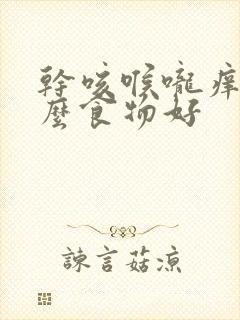 幹咳喉嚨癢
麼食物好
諫言菇涼